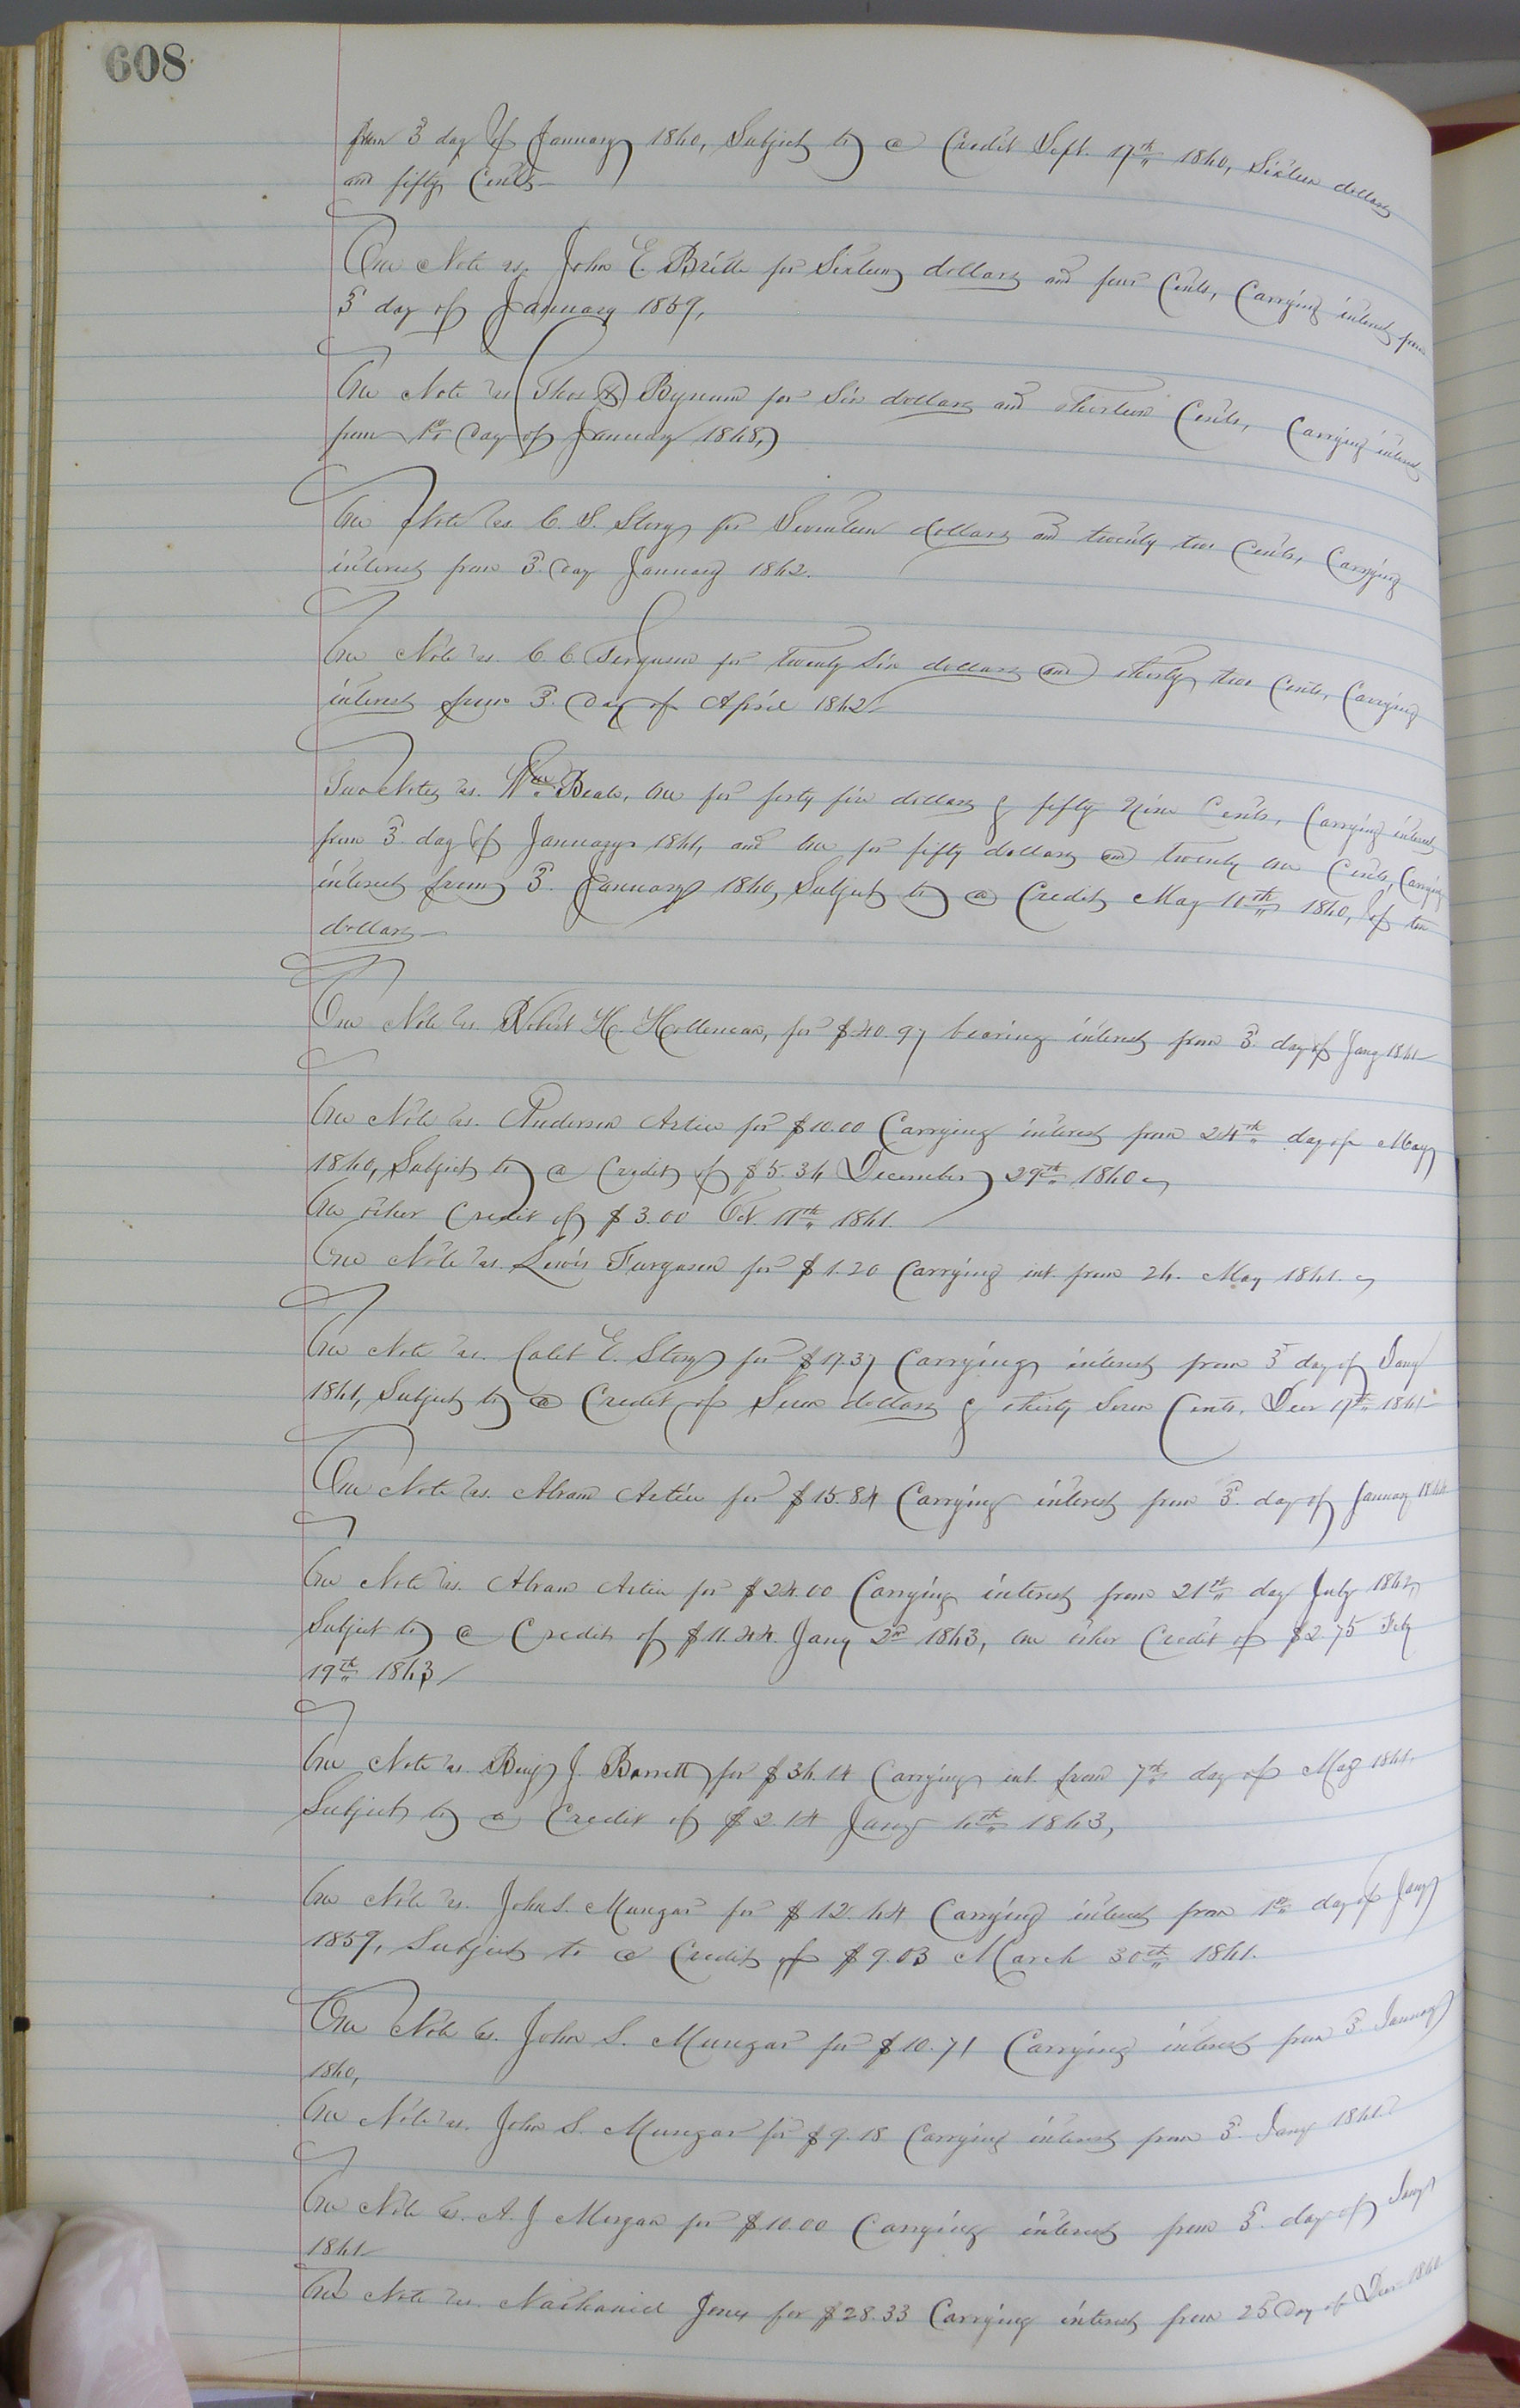 608
from 3 day of January 1860, Subject to a Credit Sept. 17th 1860, Sixteen dollars
and fifty Cents
One Note vs. John E. for Sixteen dollars and four Cents, Carrying interest from
3 day of January 1859,
One Note vs Thos Bynum for Six dollars and thirteen Cents, Carrying interest
from 1st Day of January 1868,
One Note vs. C. S. Story for Seventeen dollars and twenty two Cents, Carrying
interest from 3. Day January 1862.
One Note vs. C. C. Ferguson for twenty Six dollars and thirty two Cents, Carrying
interest from 3. Day of April 1862
Two Notes vs. Wm Beale, One for forty five dollars & fifty Nine Cents, Carrying interest
from 3. day of January 1861, and One for fifty dollars and twenty One Cents, Carrying
interest from 3. January 1860, Subject to a Credit May 10th 1860, of ten
dollars
One Note vs. Robert H. Holleman, for $40.97 bearing interest from 3. day of Jany 1861
One Note vs. Anderson Artis for $10.00 Carrying interest from 24th day of May
1860, Subject to a Credit of $5.36 December 29th 1860
One other Credit of $3.00 Oct. 11th 1861.
One Note vs. Lewis Furgason for $1.20 Carrying int. from 26. May 1861.
One Note vs. Calet E. Story for $17.37 Carrying interest from 3 day of Jany
1861, Subject to a Credit of Seven dollars & thirty Seven Cents. Decr 17th 1861
One Note vs. Abram Artis for $15.84 Carrying interest from 3. day of January
One Note vs. Abram Artis for $24.00 Carrying interest from 21st day July 1862,
Subject to a Credit of $11.44. Jany 2nd 1863, One other Credit of $2.75 Feby
19th 1863
One Note vs. Benj J. Barrett for $36.14 Carrying int. from 7th day of May 1861.
Subject to a Credit of $2.14 Jany 6th 1863,
One Note vs. John S. Mungar for $12.64 Carrying interest from 1st day of Jany
1859, Subject to a Credit of $9.03 March 30th 1861.
One Note vs. John S. Mungar for $10.71 Carrying interest from 3 January
1860,
One Note vs. John S. Mungar for $9.18 Carrying interest from 3. Jany 1861.
One Note vs. A. J Morgan for $10.00 Carrying interest from 3. day of Jany
1861
One Note vs. Nathaniel Jones for $28.33 Carrying interest from 25 Day of Decr